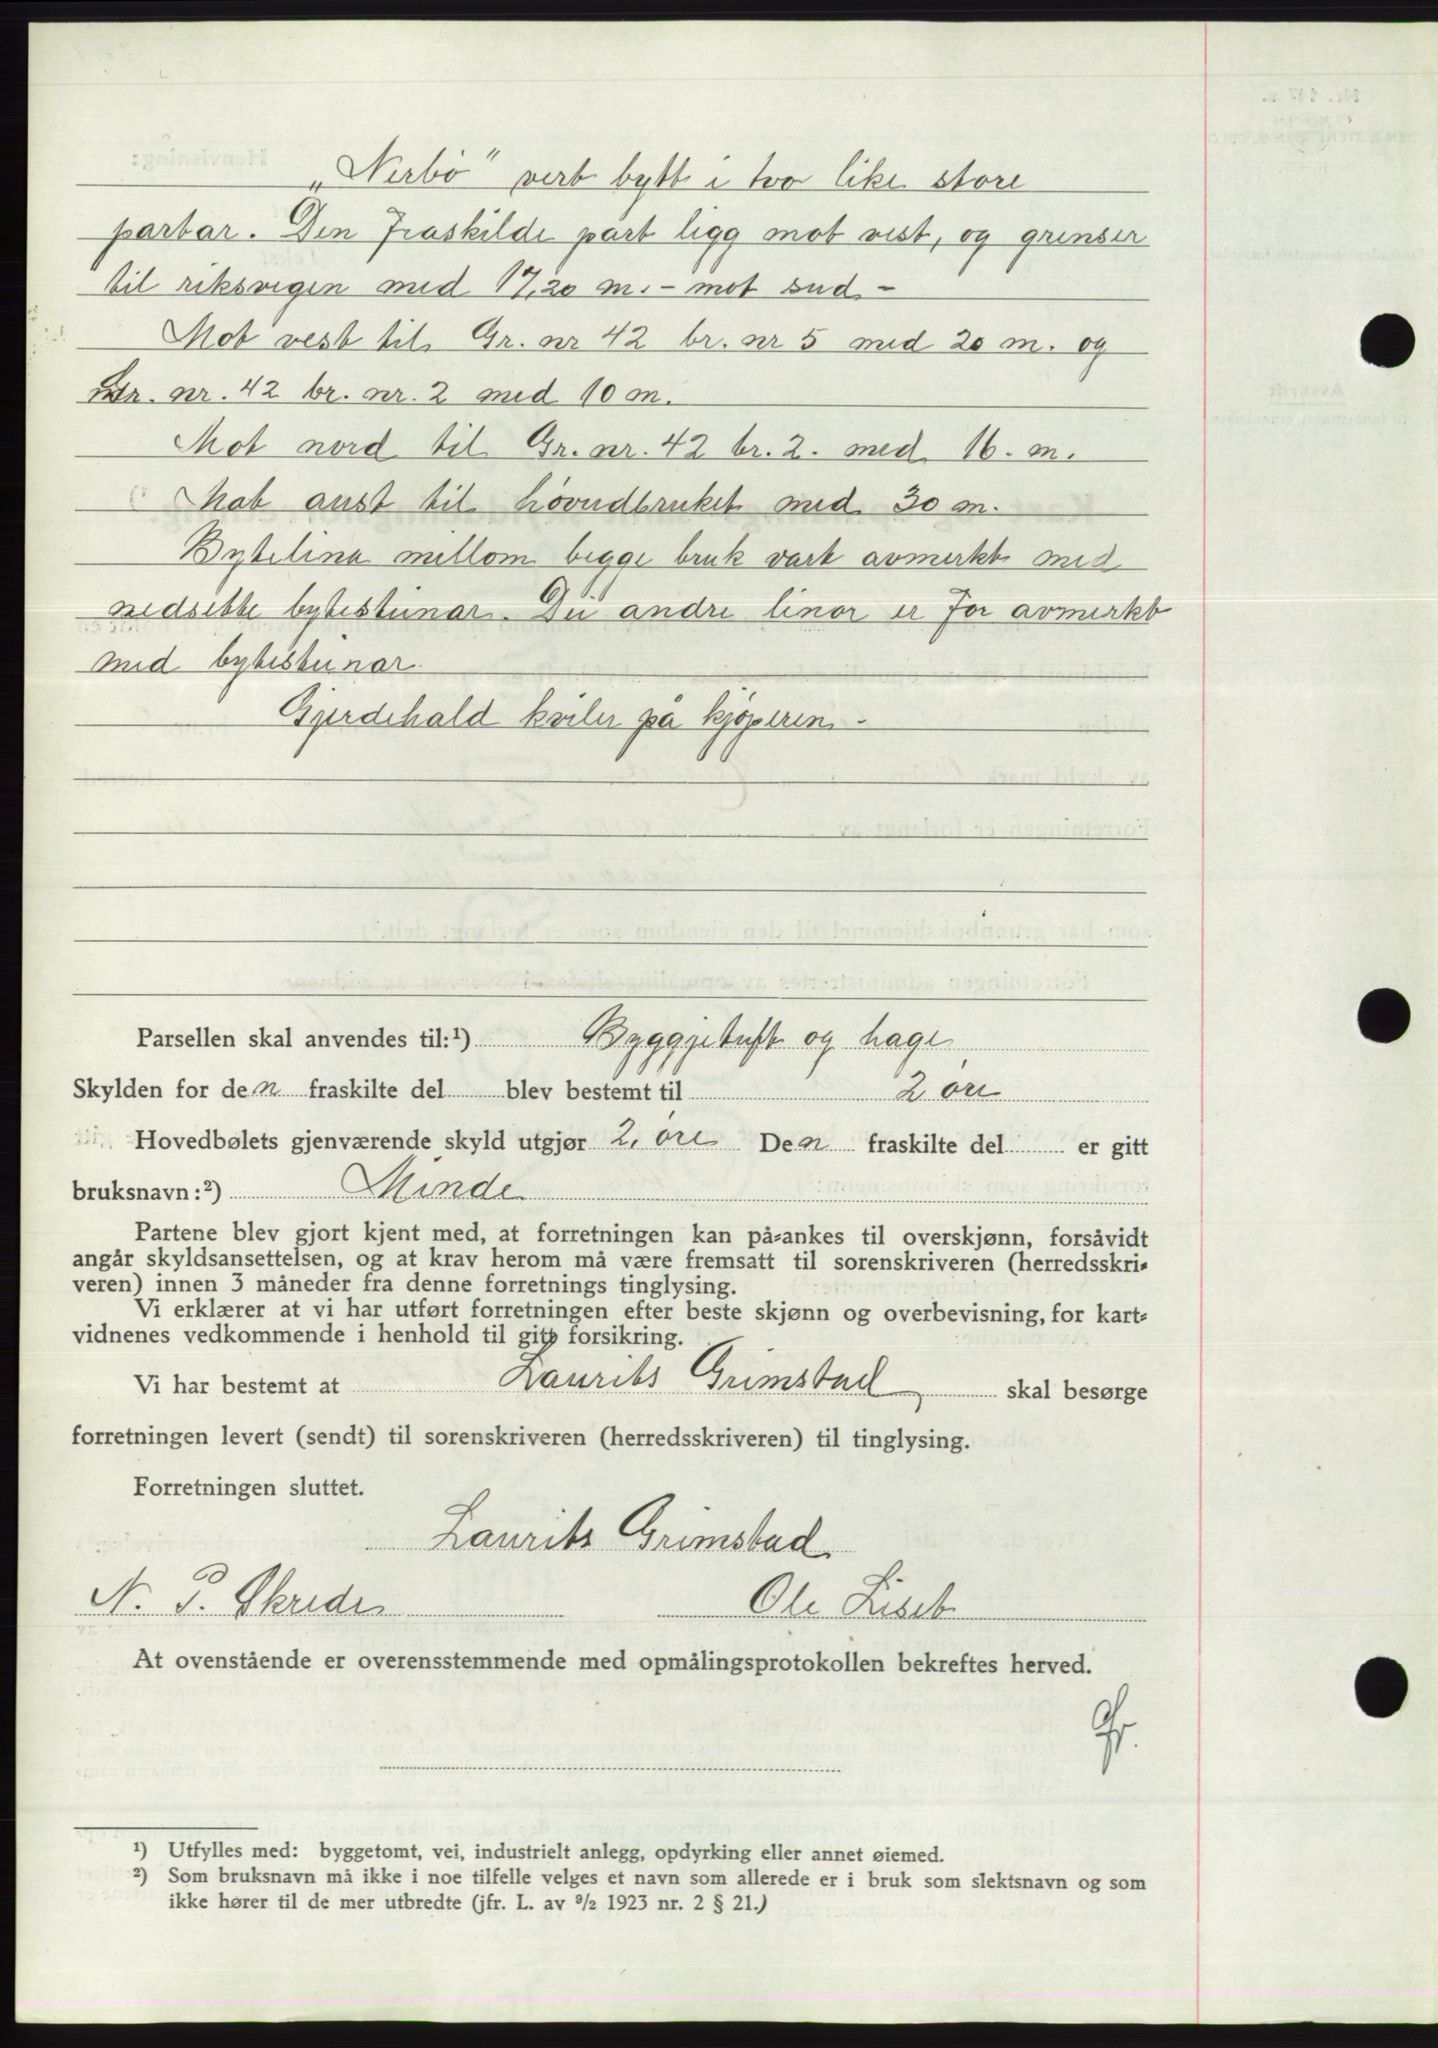 „Nerbø" vert bytt i tvo like store
partar. Den fraskilde part ligg mot vest, og grenser
til riksvegen med 17,20 m. - mot sud -
Mot vest til Gr. nr 42 br. nr 5 med 20 m. og
Gr. nr. 42 br. nr. 2 med 10 m.
Mot nord til Gr. nr. 42 br. 2. med 16. m.
Mot aust til høvudbruket med 30 m.
Bytelina millom begge bruk vart avmerkt med
nedsette bytesteinar. Dei andre linor er før avmerkt
med bytesteinar.
Gjerdehald kviler på kjøperen -
Parsellen skal anvendes til:¹) Byggjetuft og hage
Skylden for den fraskilte del blev bestemt til 2 øre
Hovedbølets gjenværende skyld utgjør 2, øre Den fraskilte del er gitt
bruksnavn:²) Minde
Partene blev gjort kjent med, at forretningen kan på-ankes til overskjønn, forsåvidt
angår skyldsansettelsen, og at krav herom må være fremsatt til sorenskriveren (herredsskri-
veren) innen 3 måneder fra denne forretnings tinglysing.
Vi erklærer at vi har utført forretningen efter beste skjønn og overbevisning, for kart-
vidnenes vedkommende i henhold til gitt forsikring.
Vi har bestemt at Laurits Grimstad skal besørge
forretningen levert (sendt) til sorenskriveren (herredsskriveren) til tinglysing.
Forretningen sluttet.
Laurits Grimstad
N. P. Skrede Ole Liset
At ovenstående er overensstemmende med opmålingsprotokollen bekreftes herved.
Gr.
¹) Utfylles med: byggetomt, vei, industrielt anlegg, opdyrking eller annet øiemed.
²) Som bruksnavn må ikke i noe tilfelle velges et navn som allerede er i bruk som slektsnavn og som
ikke hører til de mer utbredte (jfr. L. av ⁹/₂ 1923 nr. 2 § 21.)